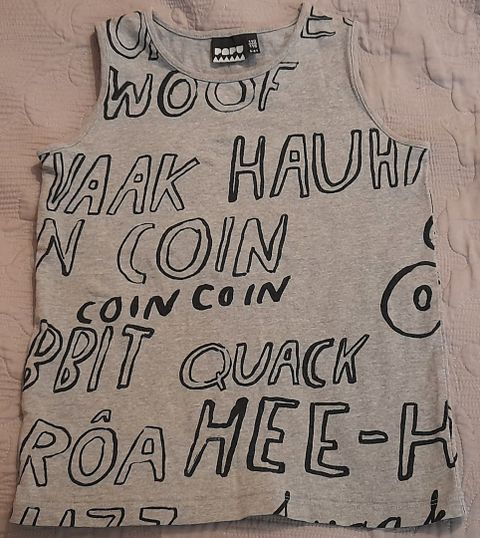 PAPU
WOOF
VAAK HAUH
N COIN
COIN COIN
BBIT QUACK
RÔA HEE-H